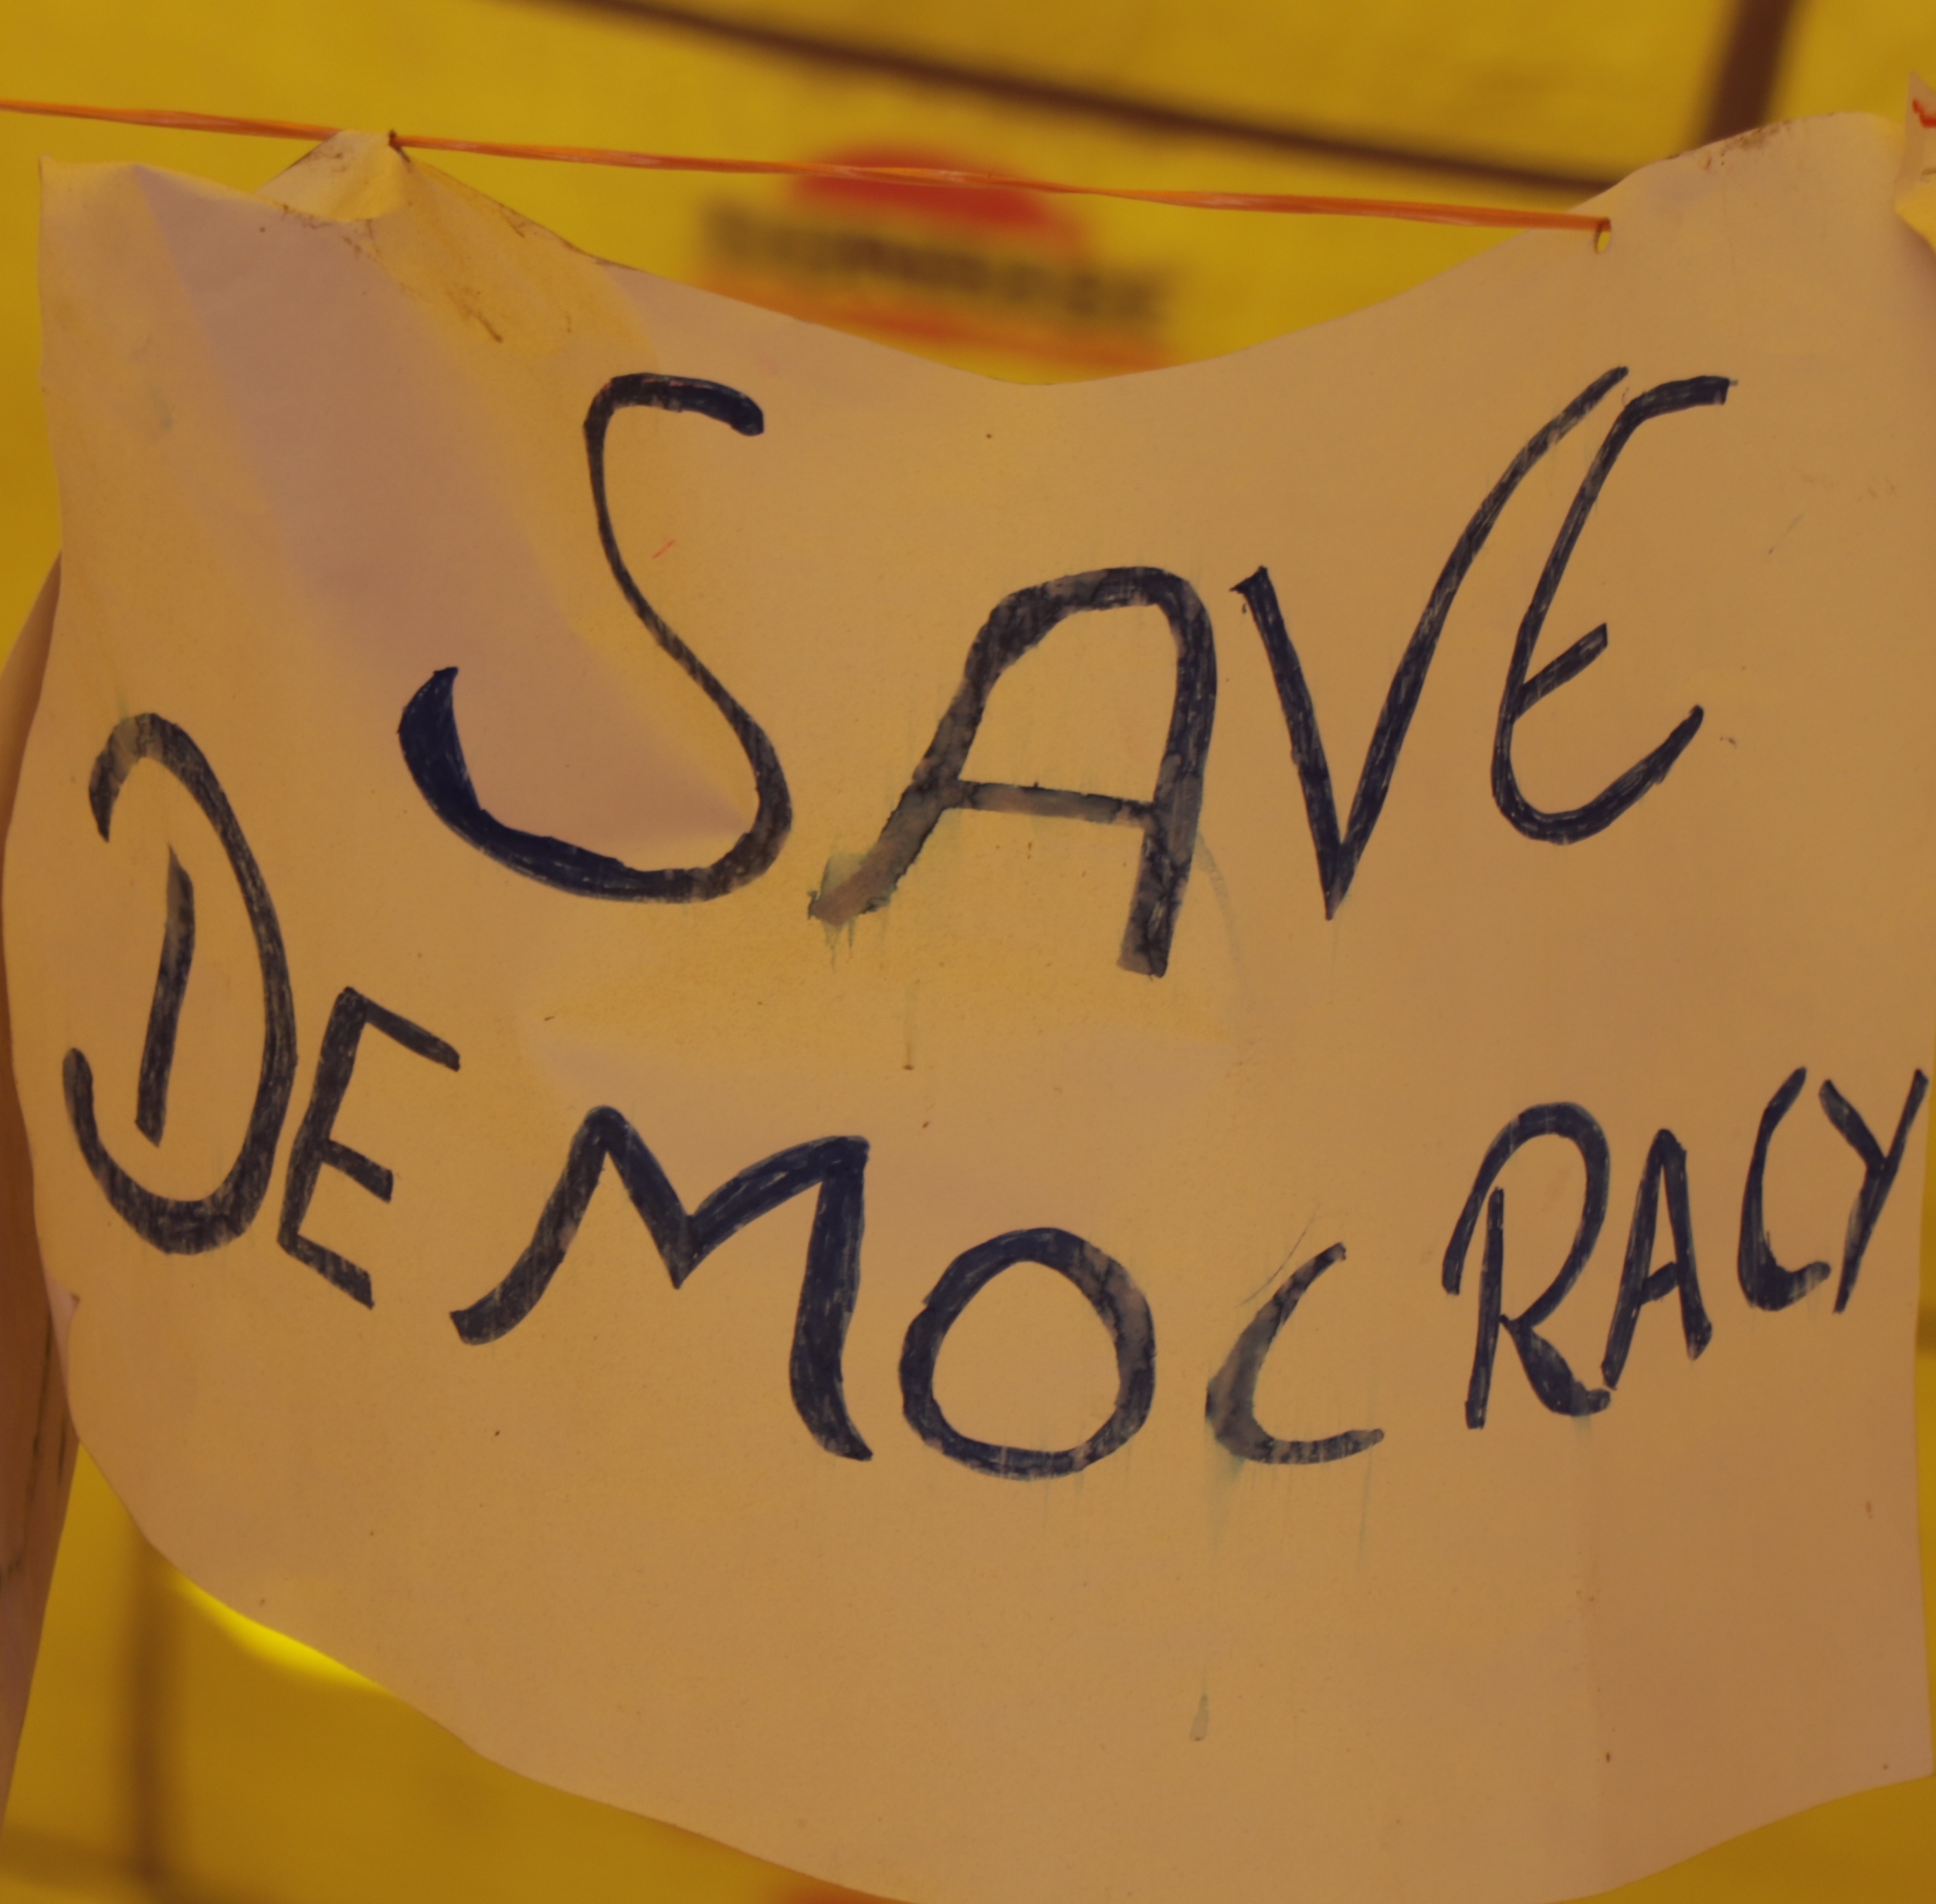 SAVE
DEMOCRACY